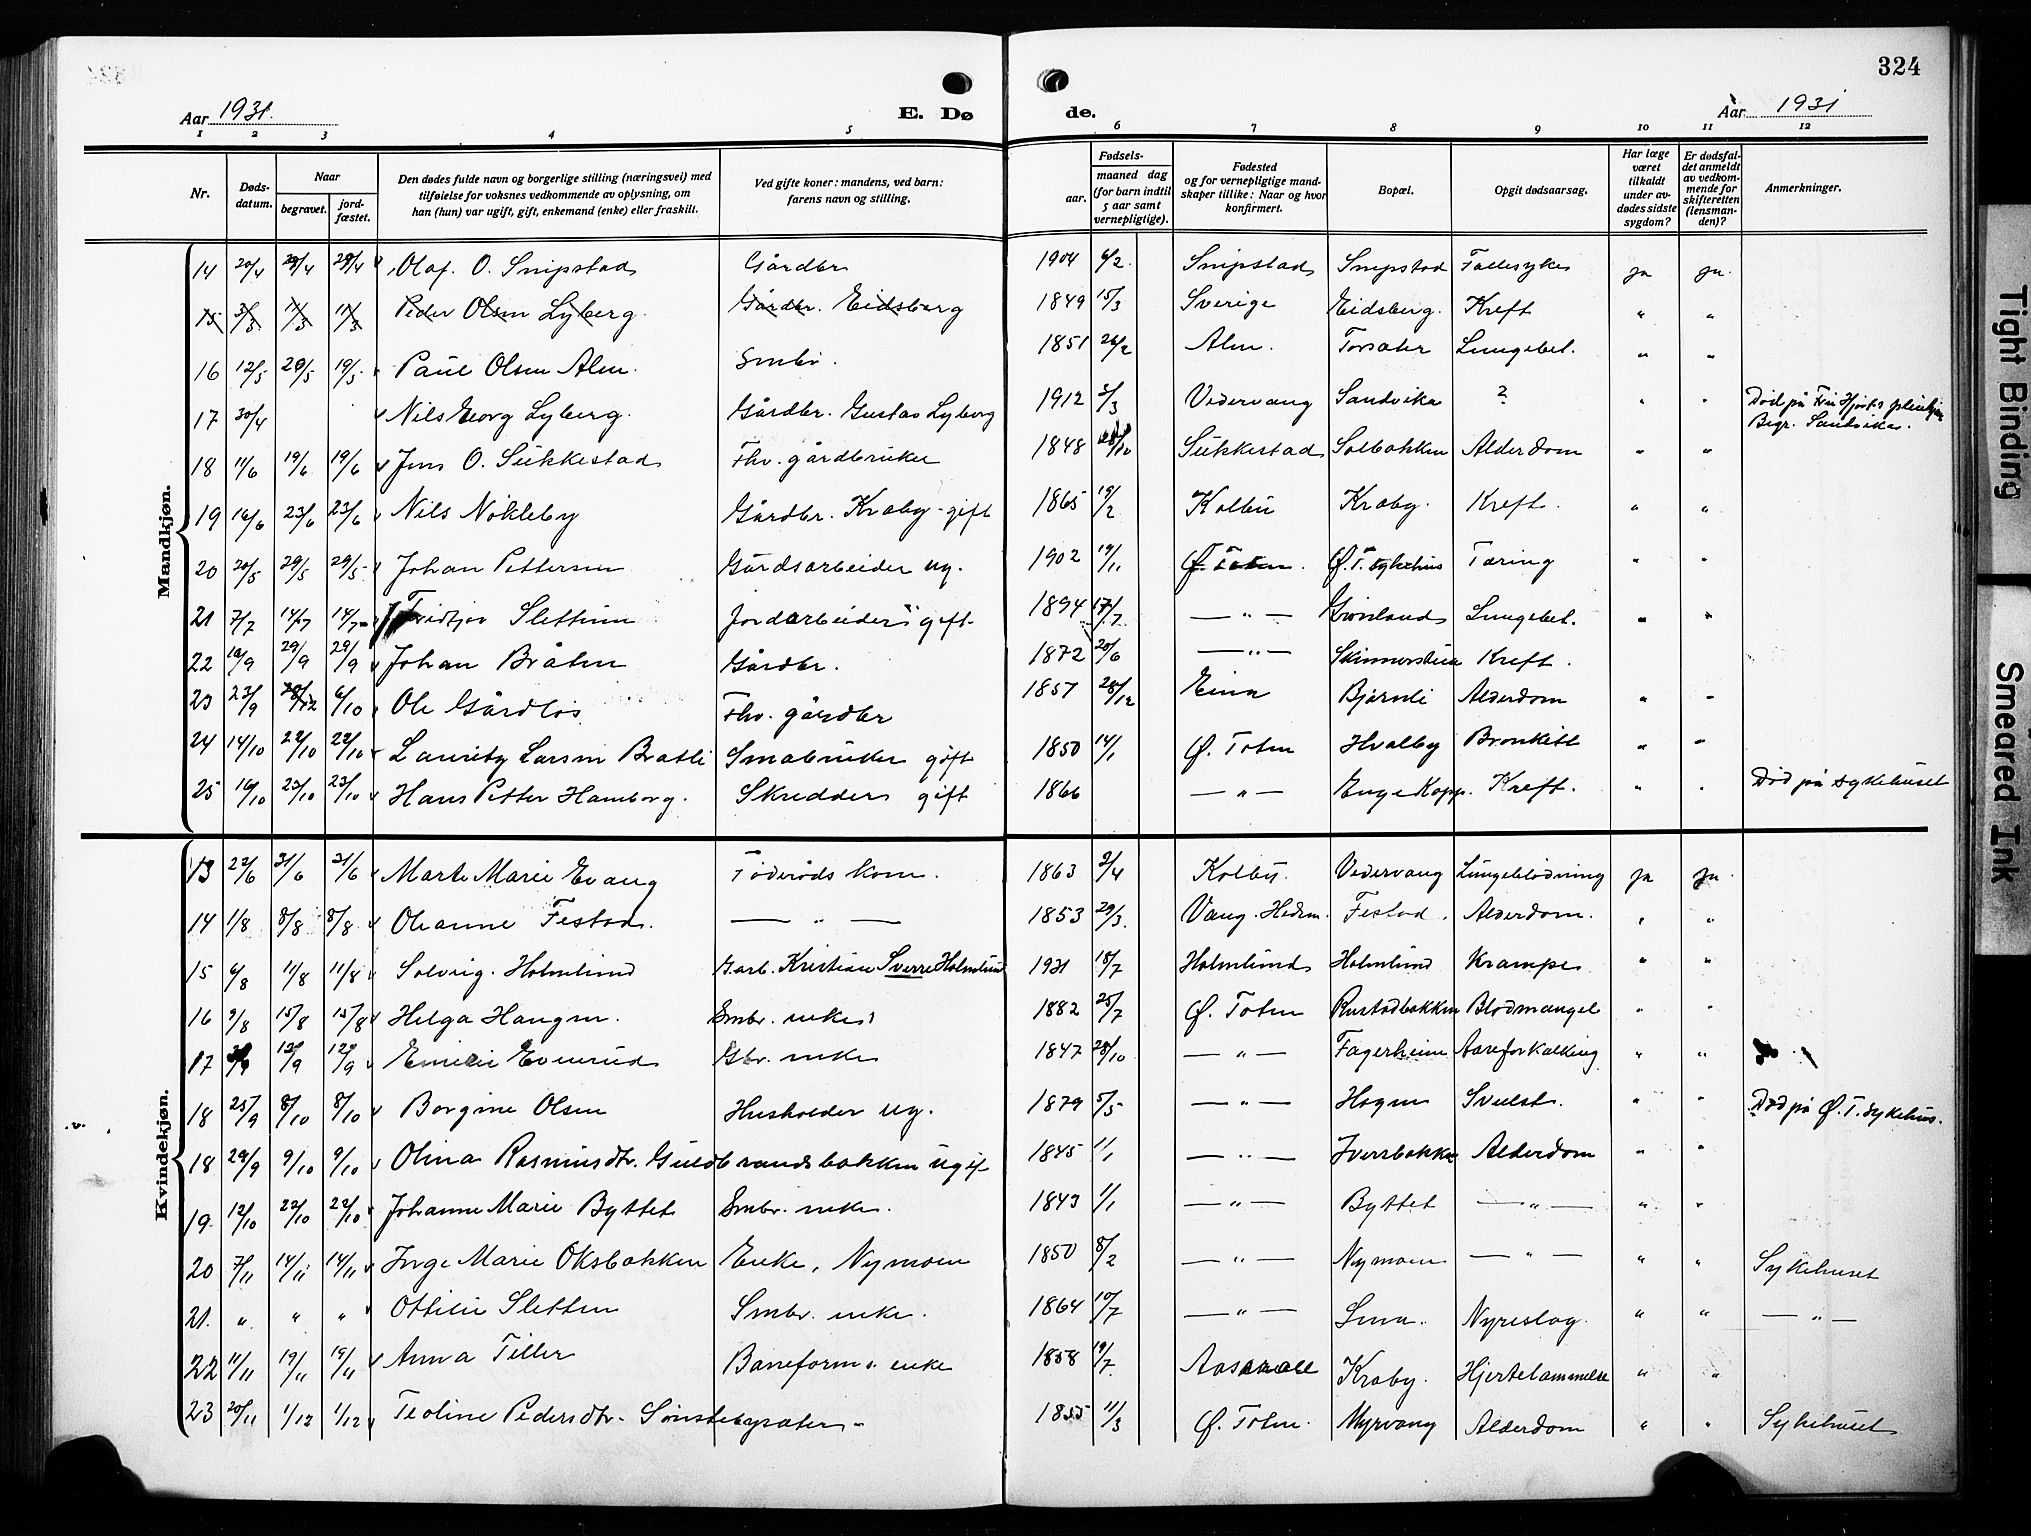 324
Aar 1931.
E. Dø
de.
Aar 1931
1 2 3 4 5 6 7 8 9 10 11 12
Nr.
Døds-
datum.
Naar
begravet.
jord-
fæstet.
Den dødes fulde navn og borgerlige stilling (næringsvei) med
tilføielse for voksnes vedkommende av oplysning, om
han (hun) var ugift, gift, enkemand (enke) eller fraskilt.
Ved gifte koner: mandens, ved barn:
farens navn og stilling.
Fødsels-
aar.
maaned dag
(for barn indtil
5 aar samt
vernepligtige).
Fødested
og for vernepligtige mand-
skaper tillike: Naar og hvor
konfirmert.
Bopæl.
Opgit dødsaarsag.
Har læge
været
tilkaldt
under av-
dødes sidste
sygdom?
Er dødsfal-
det anmeldt
av vedkom-
mende for
skifteretten
(lensman-
den)?
Anmerkninger.
Mandkjøn.
14 20/4 29/4 29/4 Olaf. O. Snipstad Gårdbr 1904 6/2 Snipstad Snipstad Fallesyke ja ja.
15 3/3 11/3 11/3 Peder Olsen Lyberg. Gårdbr. Eidsberg 1849 15/3 Sverige Eidsberg. Kreft " "
16 12/5 20/5 19/5 Paul Olsen Alm. Smbr. 1851 26/2 Alm. Torsæter Lungebet. " "
17 30/4 Nils Georg Lyberg. Gårdbr. Gustav Lyberg 1912 3/3 Vedervang Sandvika ? " " Død på Fru Hjorts pleiehjem
Begr. Sandvika.
18 11/6 19/6 19/6 Jens O. Sukkestad Fhv. gårdbruker 1848 Sukkestad Solbakken Alderdom " "
19 16/6 23/6 23/6 Nils Nøkleby Gårdbr. Kraby - gift 1865 19/2 Kolbu Kraby. Kreft. " "
20 20/5 29/5 29/5 Johan Pettersen Gårdsarbeider ug. 1902 19/11 Ø. Toten. Ø. T. sykehus Tæring " "
21 7/7 14/7 14/7 Fridtjov Slettum Jordarbeider gift 1894 17/7 — " — Grønland Lungebet. " "
22 19/9 29/9 29/9 Johan Bråten Gårdbr. 1872 20/6 — " — Skinnerstua Kreft. " "
23 23/9 28/12 6/10 Ole Gårdløs Fhv. gårdbr 1857 28/12 Eina Bjørnli Alderdom " "
24 14/10 22/10 22/10 Lauritz Larsen Bratli Småbruker gift 1850 14/1 Ø. Toten Hvalby Bronkitt " "
25 16/10 23/10 23/10 Hans Petter Hamborg. Skredder gift 1866 — " — Enge Kapp. Kreft. " " Død på sykehuset
Kvindekjøn.
13 22/6 31/6 31/6 Marte Marie Evang Føderåds kone. 1863 3/4 Kolbu. Vedervang Lungeblødning ja ja.
14 1/8 8/8 8/8 Oleanne Festad. — " — 1853 29/3. Vang. Hedm. Festad. Alderdom. " "
15 6/8 11/8 11/8 Solveig. Holmlund Garb. Kristian Sverre Holmlund 1931 18/7 Holmlund Holmlund Krampe " "
16 9/8 15/8 15/8 Helga Haugen. Smbr. enke 1882 25/7 Ø. Toten Rustadbakken Blodmangel " "
17 12/9 12/9 Emelie Evenrud Gbr. enke 1847 28/10 — " — Fagerheim Aareforkalking " "
18 25/9 8/10 8/10 Borgine Olsen Husholder ug. 1879 5/5 — " — Hagen Svulst. " " Død på Ø. T. sykehus.
18 29/9 9/10 9/10 Olina Rasmusdtr. Guldbrandsbakken ugif 1845 1/1 — " — Iversbakken Alderdom " "
19 12/10 22/10 22/10 Johanne Marie Byttet Smbr. enke. 1843 1/1 — " — Byttet — " — " "
20 7/11 14/11 14/11 Inge Marie Oksbakken Enke, Nymoen 1850 8/2 — " — Nymoen — " — " " Sykehuset
21. " " " Ottilie Sletten Smbr. enke. 1864 10/7 — " — Nyreslag. " " — " —
22 11/11 19/11 19/11 Anna Tiller Baneform. enke 1858 19/7. Kraby. Hjertelammelse " "
23 20/11 1/12 1/12 Teoline Pedersdtr. Sønstebysæter 1855 11/3 Ø. Toten. Myrvang Alderdom " " Sykehuset
Tight Binding
Smeared Ink